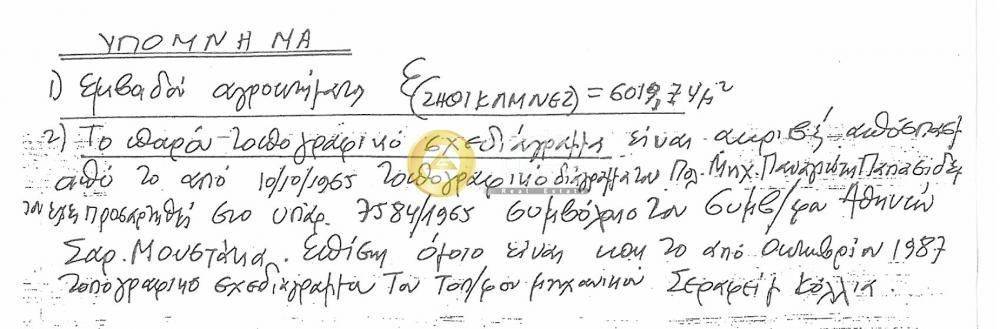 ΥΠΟΜΝΗΜΑ
1) Εμβαδόν αγροκτήματος Ε(ΖΗΘΙΚΛΜΝΞΖ) = 6019,74μ²
2) Το παρόν τοπογραφικό σχεδιάγραμμα είναι ακριβές απόσπασμα
από το από 10/10/1965 τοπογραφικό διάγραμμα του Πολ. Μηχ. Παναγιώτη
που έχει προσαρτηθεί στο υπάρ. 7584/1965 συμβόλαιο του συμβ/φου Αθηνών
Σαρ. Μουστάκα. Επίσης όμοιο είναι και το από Οκτωβρίου 1987
τοπογραφικό σχεδιάγραμμα του Τοπ/φου μηχανικού Σεραφείμ Κόλλια.
Real Estate